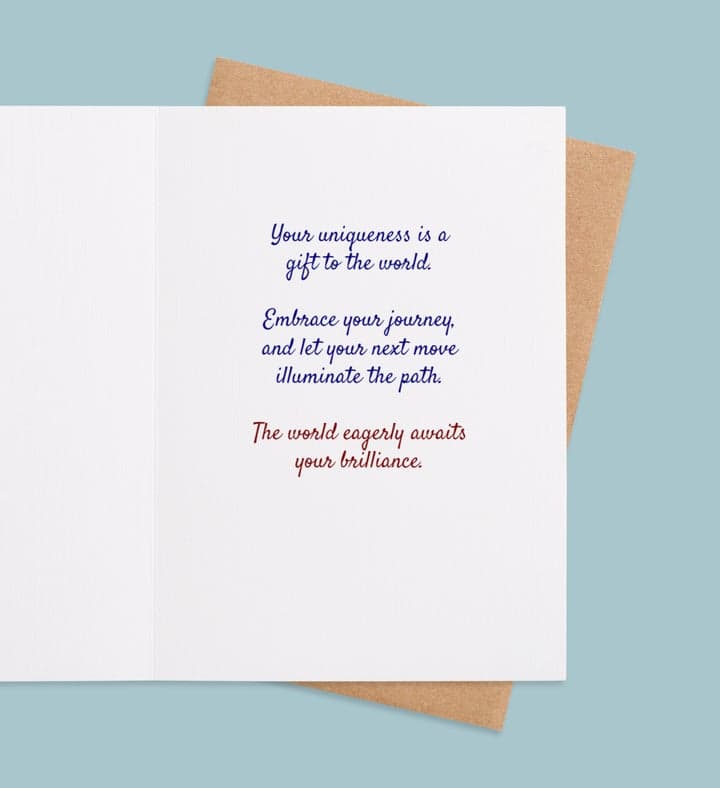 Your uniqueness is a
gift to the world.
Embrace your journey,
and let your next move
illuminate the path.
The world eagerly awaits
your brilliance.